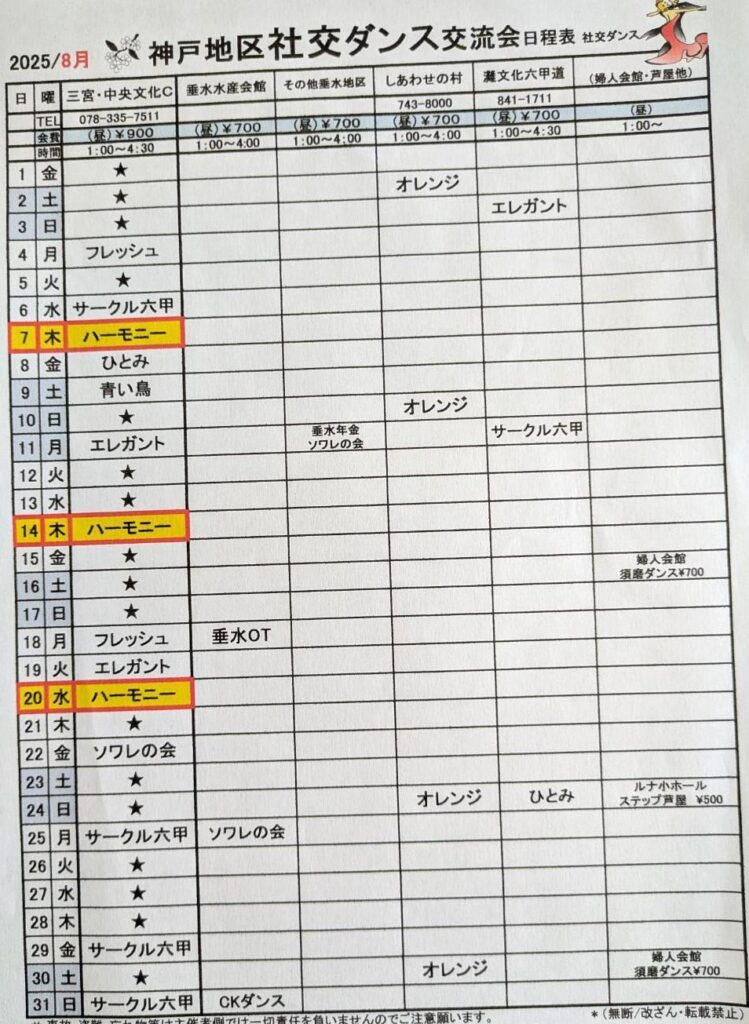 2025/8月 神戸地区社交ダンス交流会日程表 社交ダンス
日 曜 三宮・中央文化C 垂水水産会館 その他垂水地区 しあわせの村 灘文化六甲道 (婦人会館・芦屋他)
TEL 078-335-7511 743-8000 841-1711
会費 (昼)¥900 (昼)¥700 (昼)¥700 (昼)¥700 (昼)¥700 (昼)
時間 1:00～4:30 1:00～4:00 1:00～4:00 1:00～4:00 1:00～4:30 1:00～
1 金 ★
2 土 ★ オレンジ
3 日 ★ エレガント
4 月 フレッシュ
5 火 ★
6 水 サークル六甲
7 木 ハーモニー
8 金 ひとみ
9 土 青い鳥
10 日 ★ オレンジ
11 月 エレガント 垂水年金 ソワレの会 サークル六甲
12 火 ★
13 水 ★
14 木 ハーモニー
15 金 ★
16 土 ★ 婦人会館 須磨ダンス¥700
17 日 ★
18 月 フレッシュ 垂水OT
19 火 エレガント
20 水 ハーモニー
21 木 ★
22 金 ソワレの会
23 土 ★
24 日 ★ オレンジ ひとみ ルナ小ホール ステップ芦屋 ¥500
25 月 サークル六甲 ソワレの会
26 火 ★
27 水 ★
28 木 ★
29 金 サークル六甲
30 土 ★ オレンジ 婦人会館 須磨ダンス¥700
31 日 サークル六甲 CKダンス
事故・盗難・忘れ物等は主催者側では一切責任を負いませんのでご注意願います。 *(無断/改ざん・転載禁止)